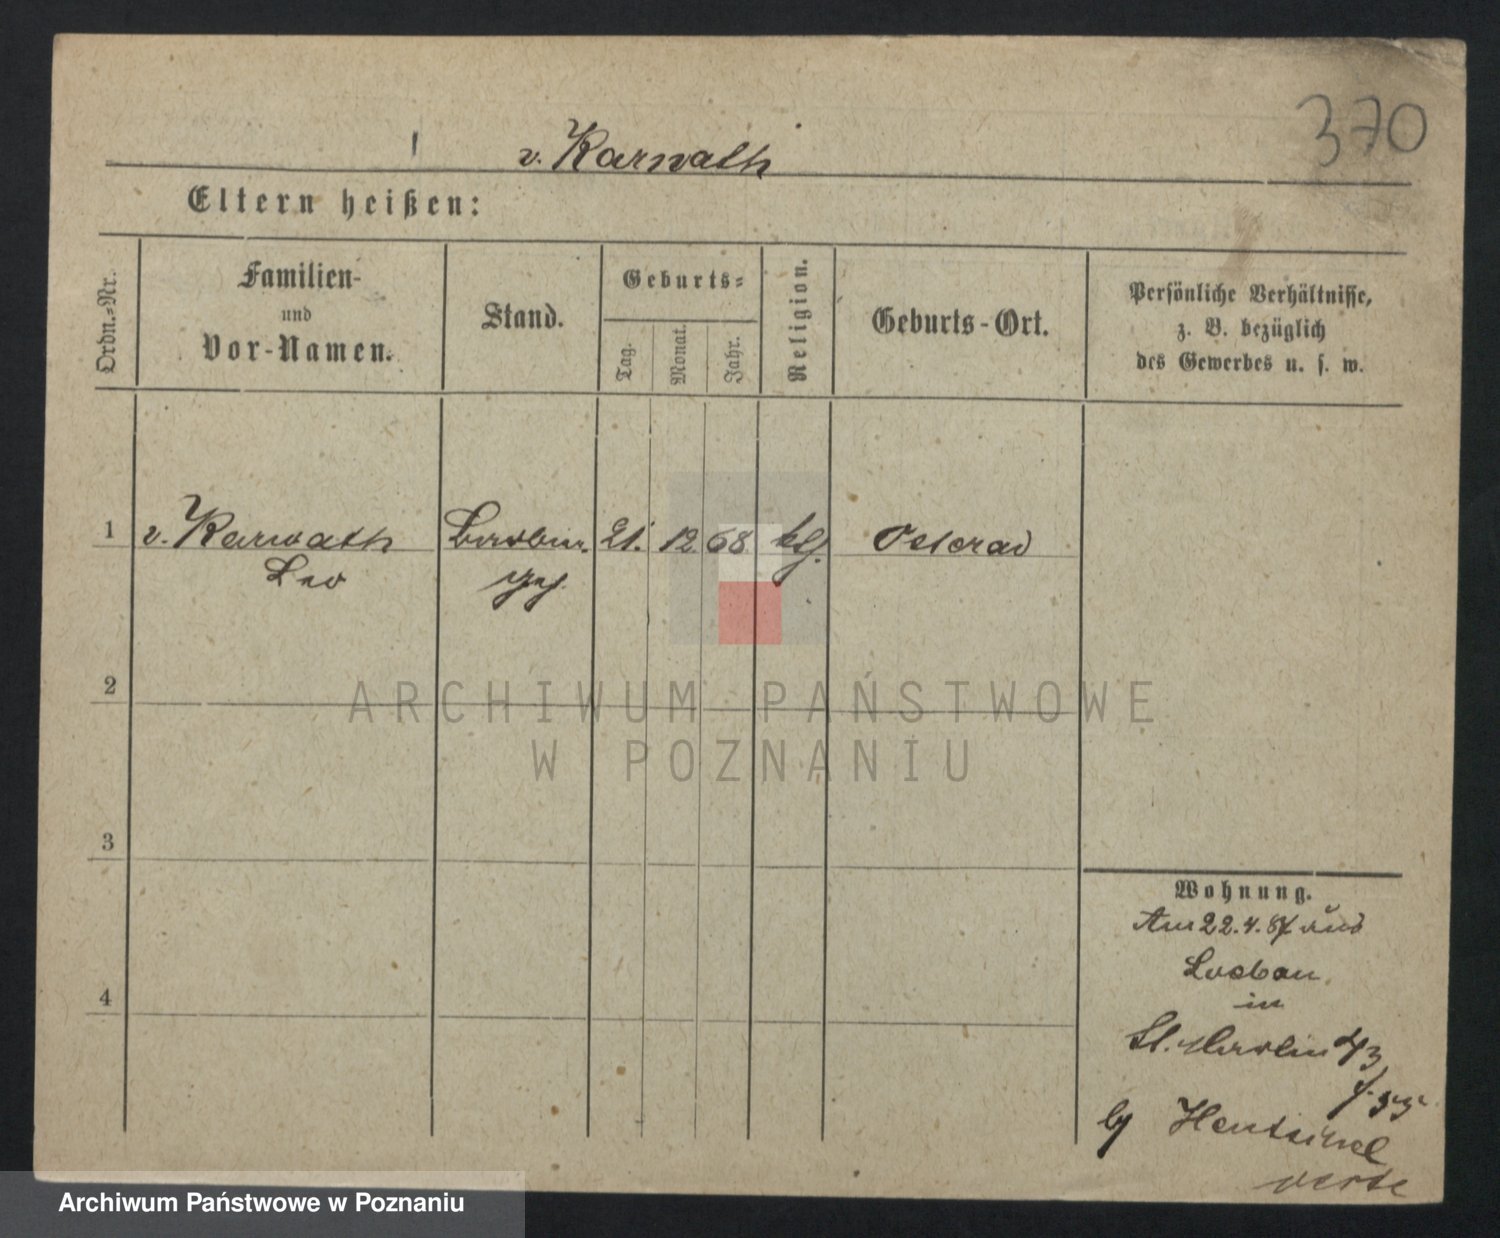 370
v. Karwath
Eltern heißen:
Ordn.-Nr.
Familien-
und
Vor-Namen.
Stand.
Geburts-
Tag.
Monat.
Jahr.
Religion.
Geburts-Ort.
Persönliche Verhältnisse,
z. B. bezüglich
des Gewerbes u. s. w.
1 v. Karwath 21. 12. 68 ktl.
Leo
2
3
4
Wohnung.
Am 22. 4. 87 aus
in
St. Martin 43
Hentschel
verte
ARCHIWUM PAŃSTWOWE
W POZNANIU
Archiwum Państwowe w Poznaniu